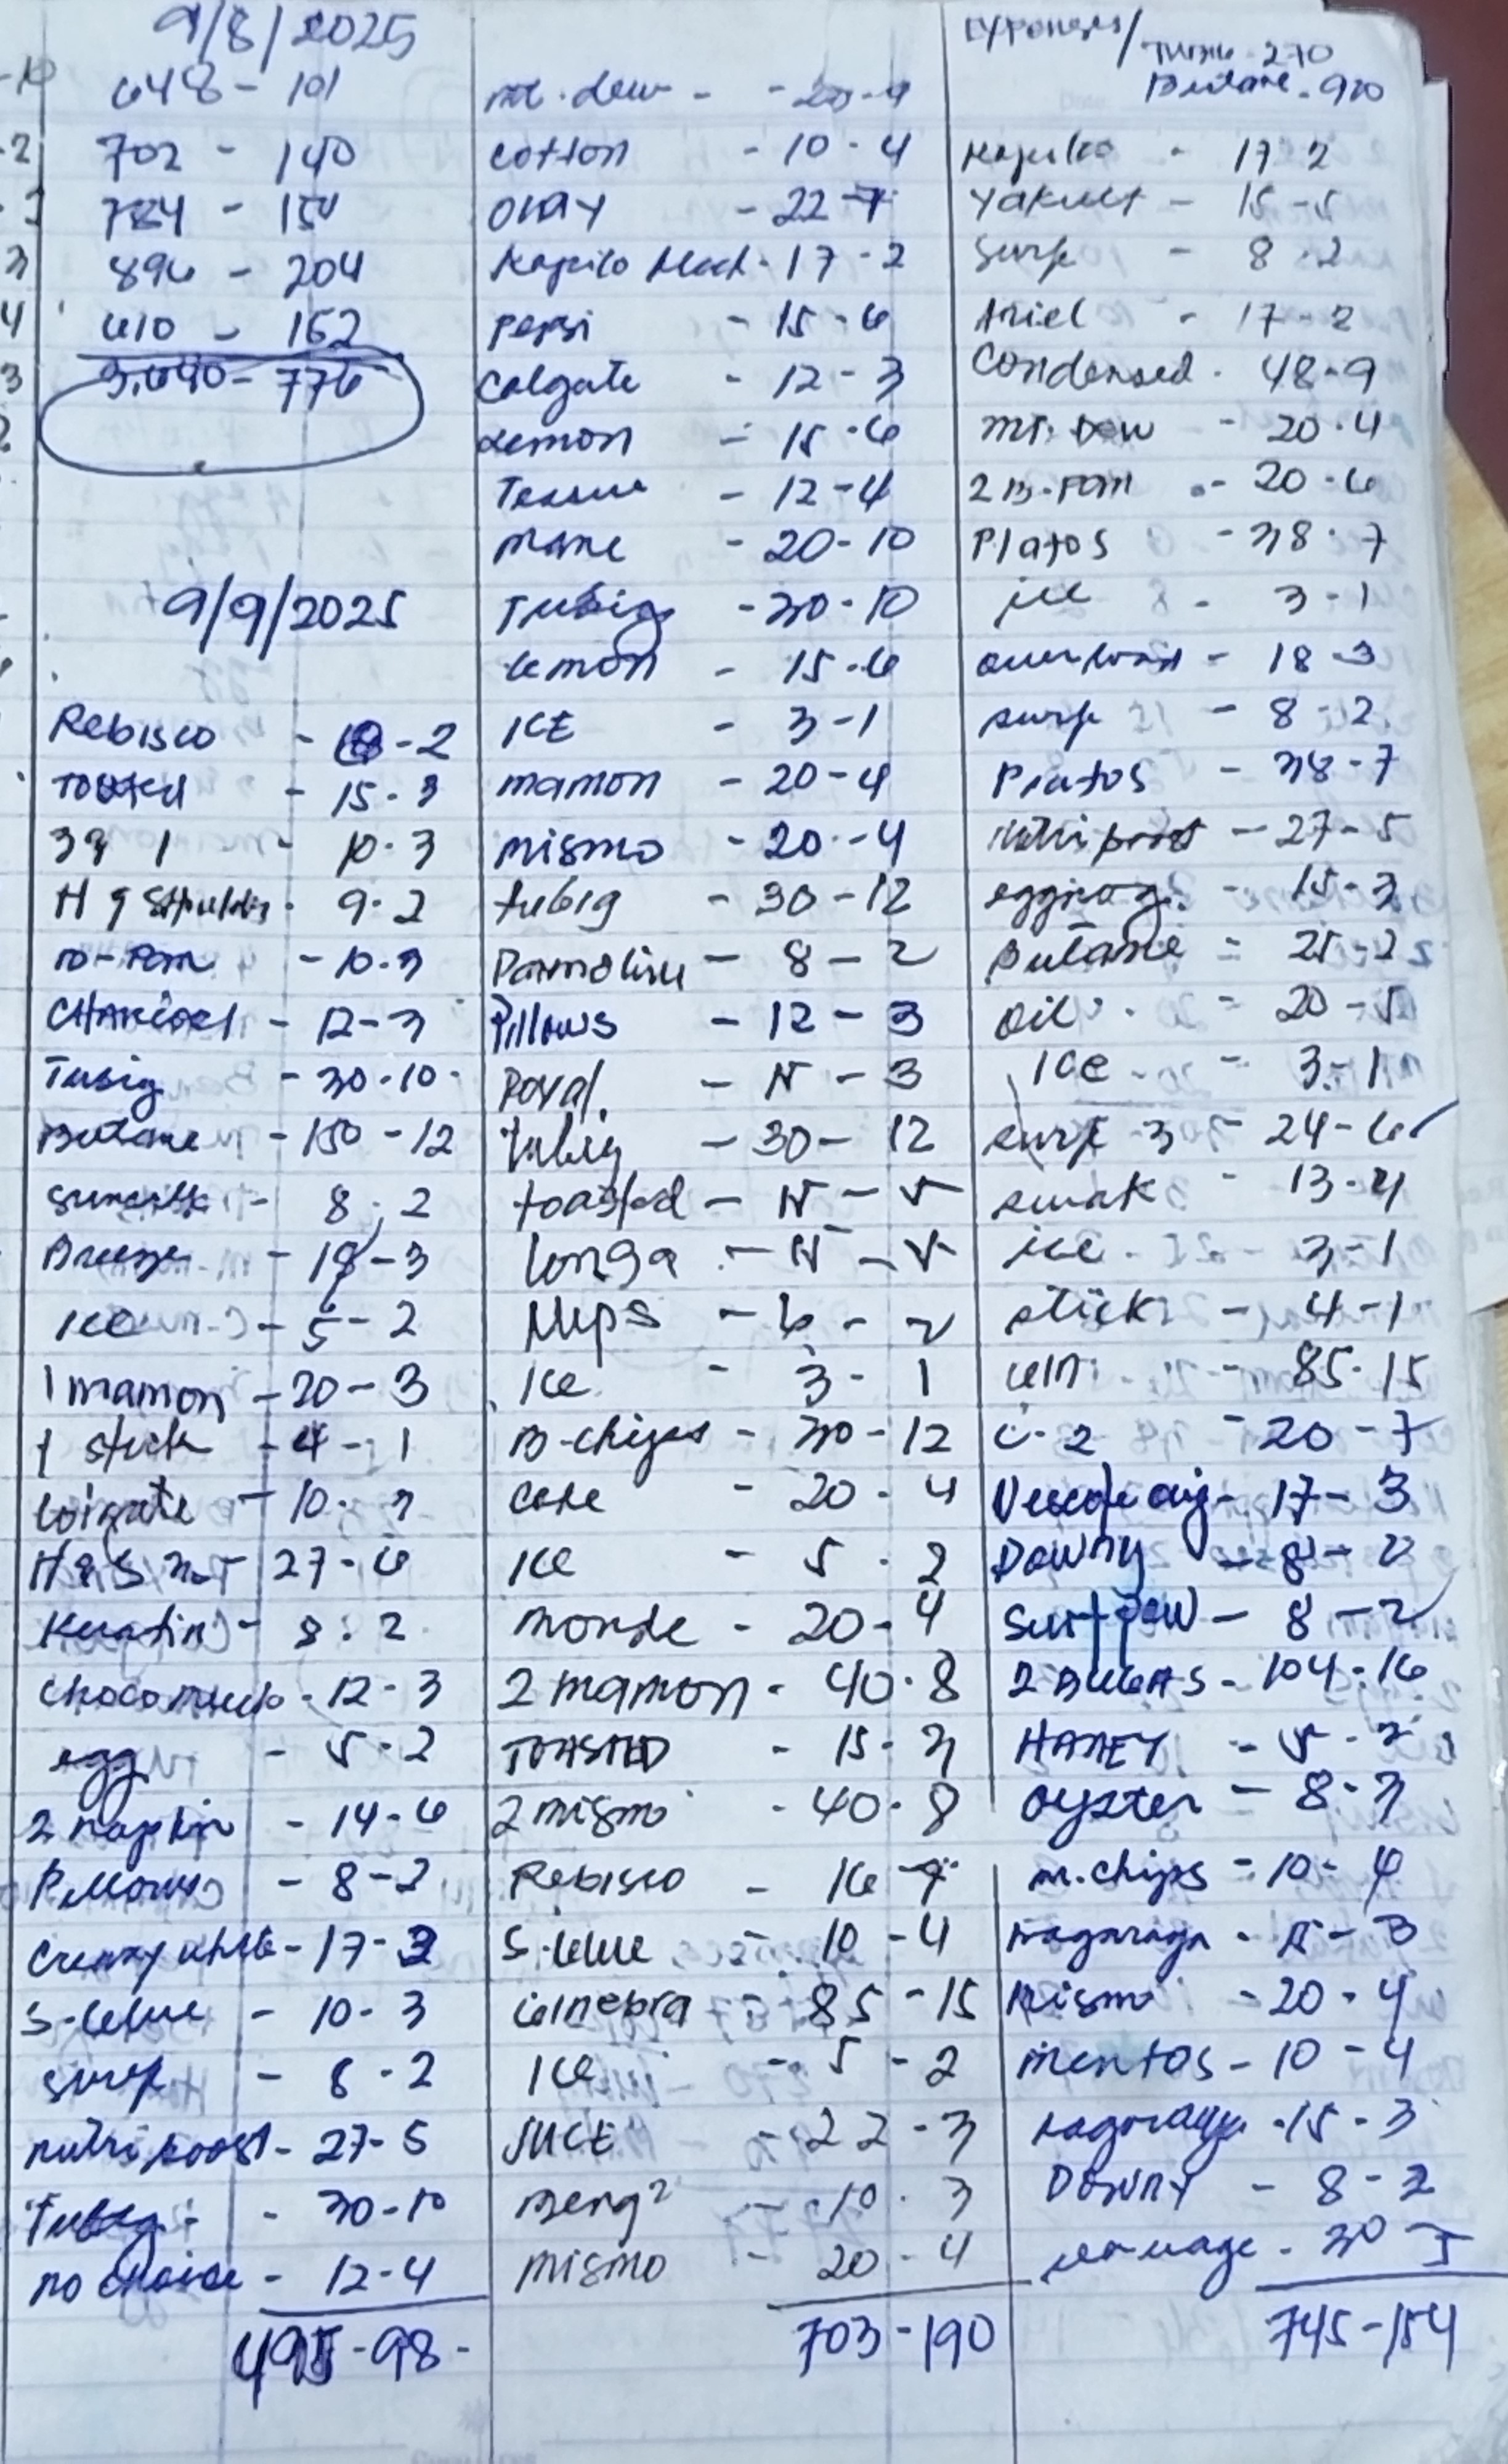 9/8/2025
648 - 101
702 - 140
784 - 154
896 - 204
610 - 162
3,640 - 776
9/9/2025
Rebisco - 18 - 2
- 15 - 3
3 9 1 - 10 - 3
H 9 - 9 - 2
10 - Pam - 10 - 3
CHARCoal - 12 - 3
Tubig - 30 - 10 -
Butane - 150 - 12
Sunsilk - 8 - 2
Breeze - 18 - 3
ICE - 5 - 2
1 mamon - 20 - 3
1 stick - 4 - 1
Colgate - 10 - 3
H & S 3 - 27 - 6
Keratin - 8 - 2
Chocomucho - 12 - 3
egg - 5 - 2
2 napkin - 14 - 6
Pillows - 8 - 2
Creamy white - 17 - 3
S-blue - 10 - 3
surf - 8 - 2
nutriboost - 27 - 5
Tubig - 30 - 10
no choice - 12 - 4
495 - 98 -
mt. dew - - 20 - 4
cotton - 10 - 4
Okay - 22 - 7
Kopiko black - 17 - 2
pepsi - 15 - 6
Colgate - 12 - 3
Lemon - 15 - 6
Tessue - 12 - 4
mane - 20 - 10
Tubig - 30 - 10
Lemon - 15 - 6
ICE - 3 - 1
mamon - 20 - 4
mismo - 20 - 4
tubig - 30 - 12
- 8 - 2
Pillows - 12 - 3
Royal - 15 - 3
tubig - 30 - 12
toasted - 15 - 5
longa - 15 - 5
- 6 - 2
Ice - 3 - 1
B-chips - 30 - 12
Coke - 20 - 4
ICE - 5 - 2
monde - 20 - 4
2 mamon - 40 - 8
TOASTED - 15 - 3
2 mismo - 40 - 8
Rebisco - 16 - 4
S-blue - 10 - 4
Ginebra - 85 - 15
ICE - 5 - 2
JUICE - 22 - 3
Beng2 - 10 - 3
mismo - 20 - 4
703 - 190
Expenses/ Tubig - 270
Butane - 920
Kopiko - 17 - 2
Yakult - 15 - 5
Surf - 8 - 2
Ariel - 17 - 2
Condensed - 48 - 9
MT. Dew - 20 - 4
2 B. Pam - 20 - 6
Piatos - 38 - 7
ice - 3 - 1
overload - 18 - 3
surf - 8 - 2
Piatos - 38 - 7
nutriboost - 27 - 5
eggnog - 15 - 3
Butane - 25 - 2
oil - 20 - 5
Ice - 3 - 1
surf 3 - 24 - 6
swak - 13 - 4
ice - 3 - 1
stick - 4 - 1
Gin - 85 - 15
C-2 - 20 - 7
- 17 - 3
Downy - 8 - 2
Surf pow - 8 - 2
2 BUGAS - 104 - 16
HANEY - 5 - 2
Oyster - 8 - 3
m. chips - 10 - 4
Kagayaga - 15 - 3
Mismo - 20 - 4
mentos - 10 - 4
- 15 - 3
Downy - 8 - 2
- 30 - 5
745 - 154